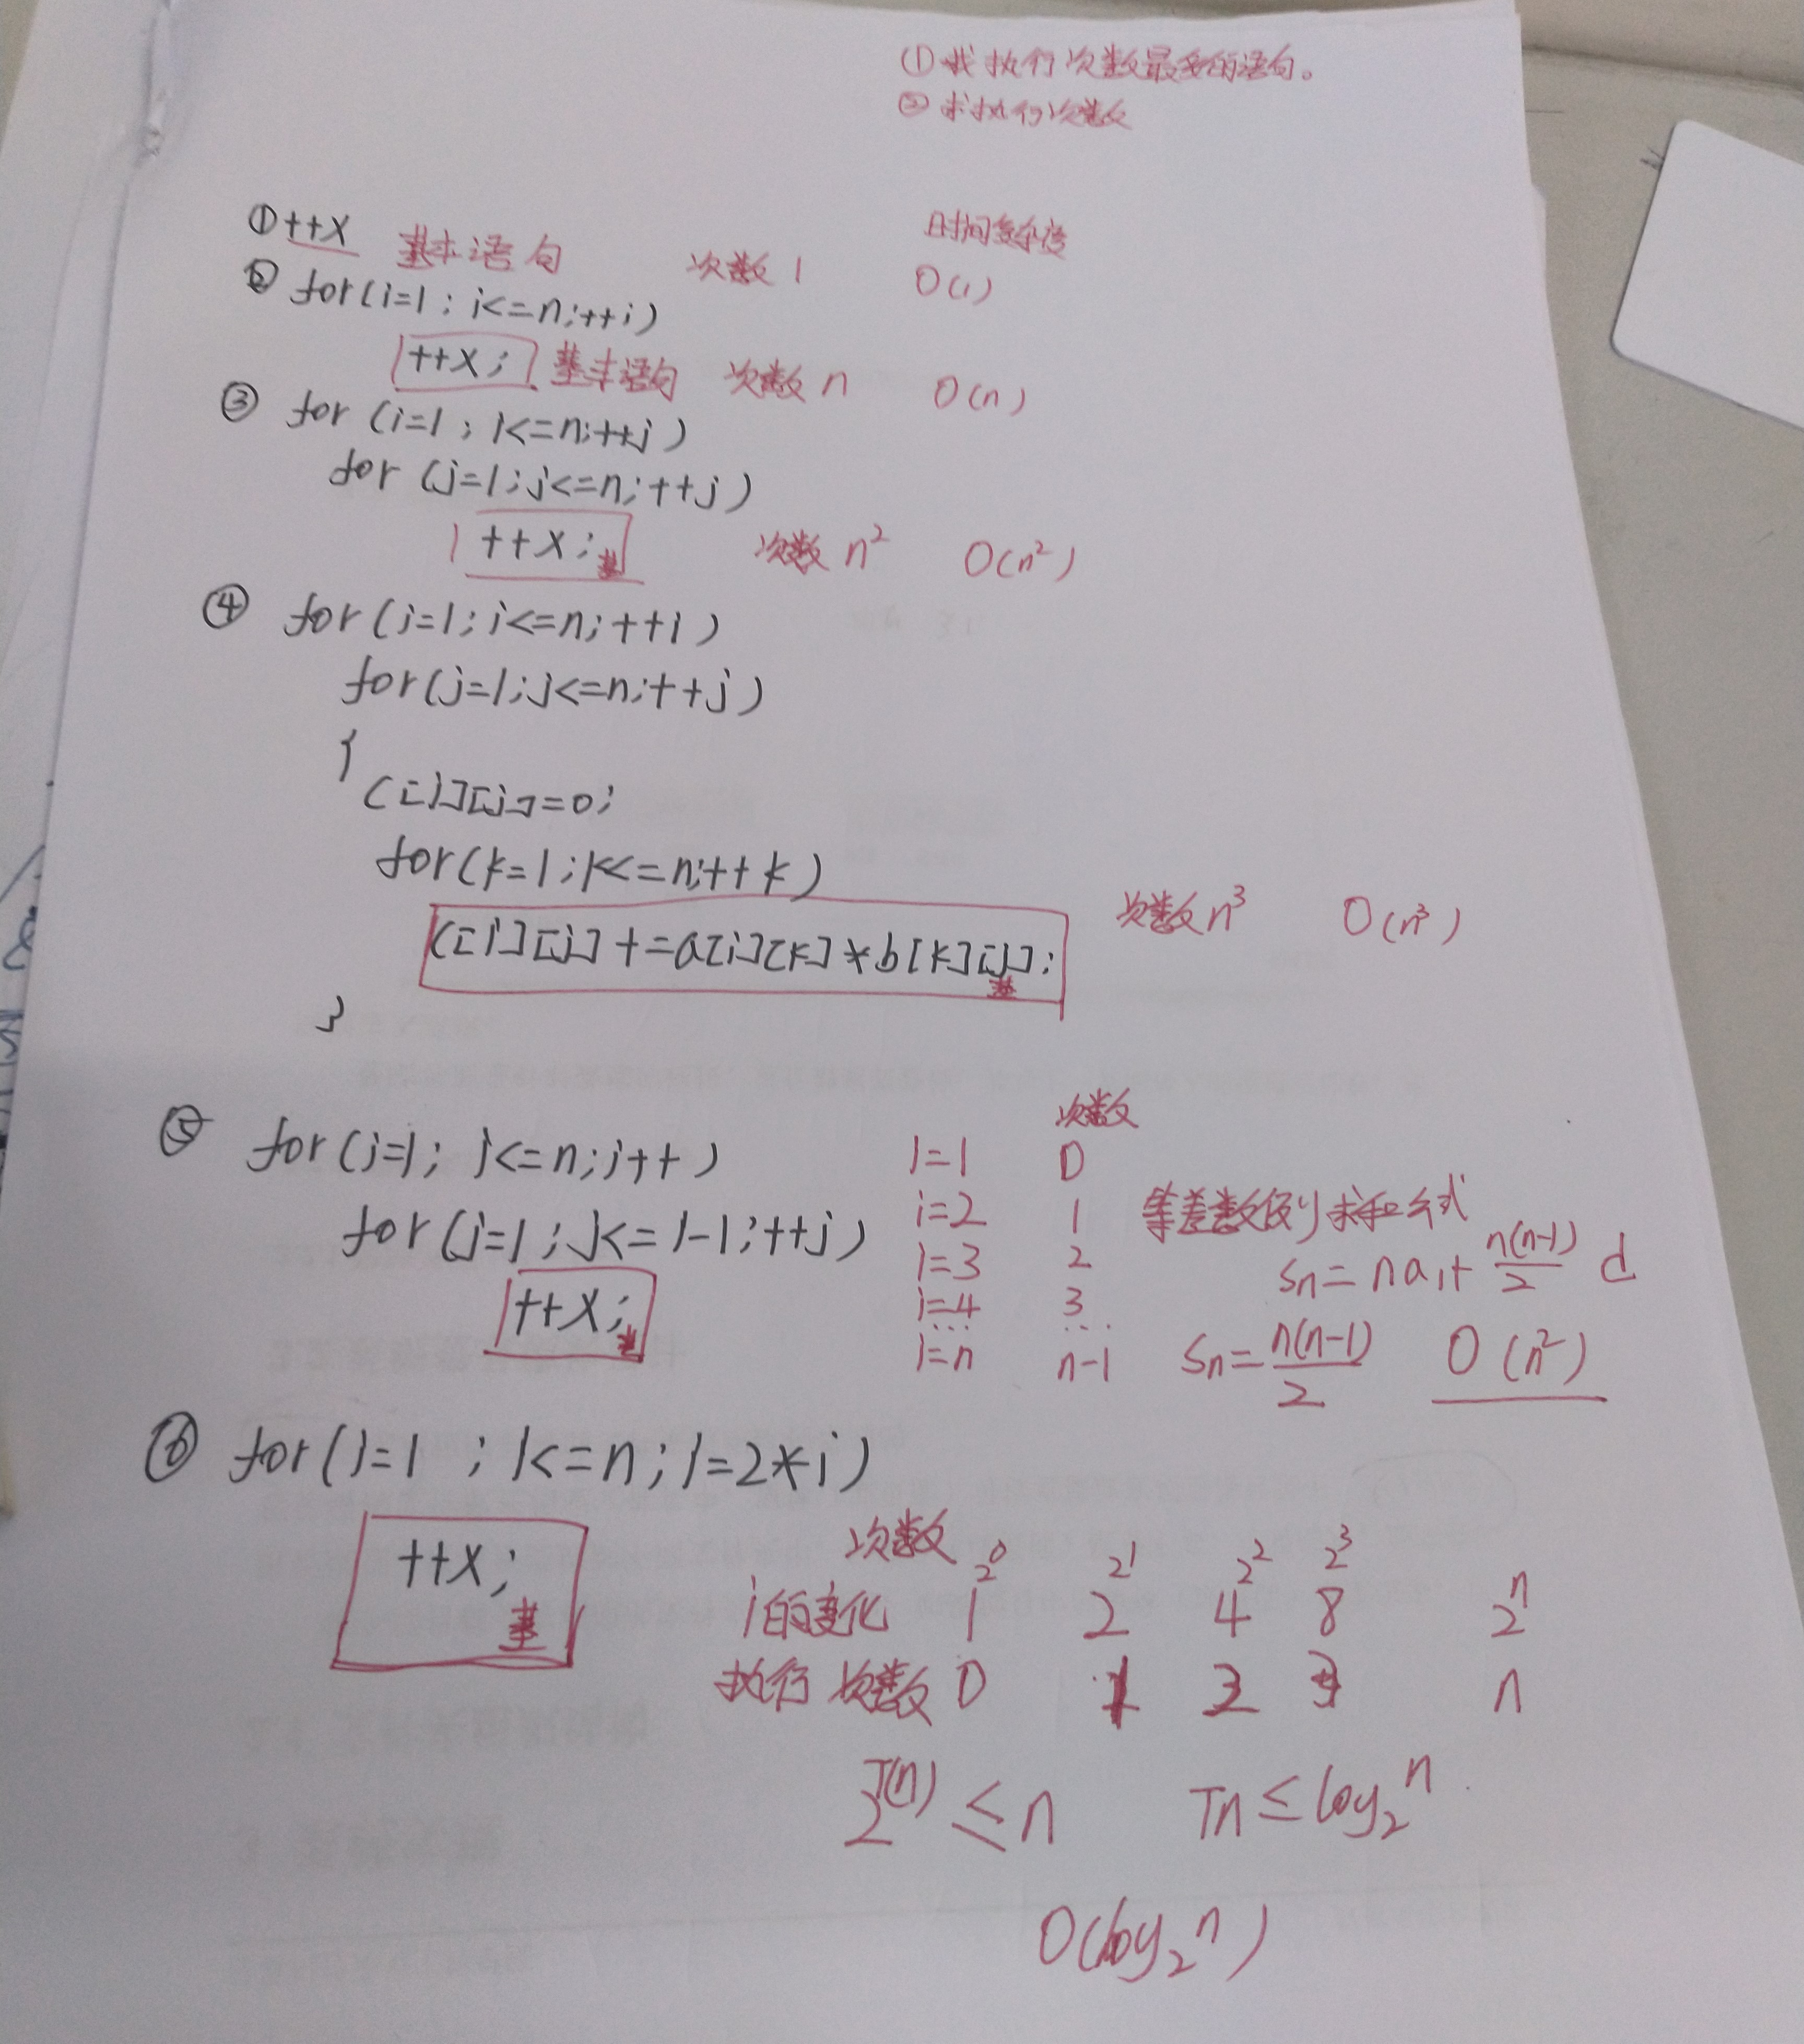 ①找执行次数最多的语句。
②求执行次数
①++x 基本语句 次数 1 时间复杂度 O(1)
② for(i=1; i<=n;++i)
++x; 基本语句 次数 n O(n)
③ for (i=1; i<=n;++j)
for (j=1;j<=n;++j)
++x;基 次数 n² O(n²)
④ for(i=1;i<=n;++i)
for(j=1;j<=n;++j)
{
c[i][j]=0;
for(k=1;k<=n;++k)
c[i][j]+=a[i][k]*b[k][j];基 次数 n³ O(n³)
}
⑤ for(i=1; i<=n;i++)
for(j=1;j<=i-1;++j)
++x;基
次数
i=1 0
i=2 1
i=3 2
i=4 3
... ...
i=n n-1
等差数列求和公式
Sn=na₁+n(n-1)/2 d
Sn=n(n-1)/2 O(n²)
⑥ for(i=1;i<=n;i=2*i)
++x;
基
次数 2⁰ 2¹ 2² 2³
i的变化 1 2 4 8 2ⁿ
执行次数 0 1 2 3 n
2^T(n) ≤ n Tn ≤ log₂ⁿ
O(log₂ⁿ)